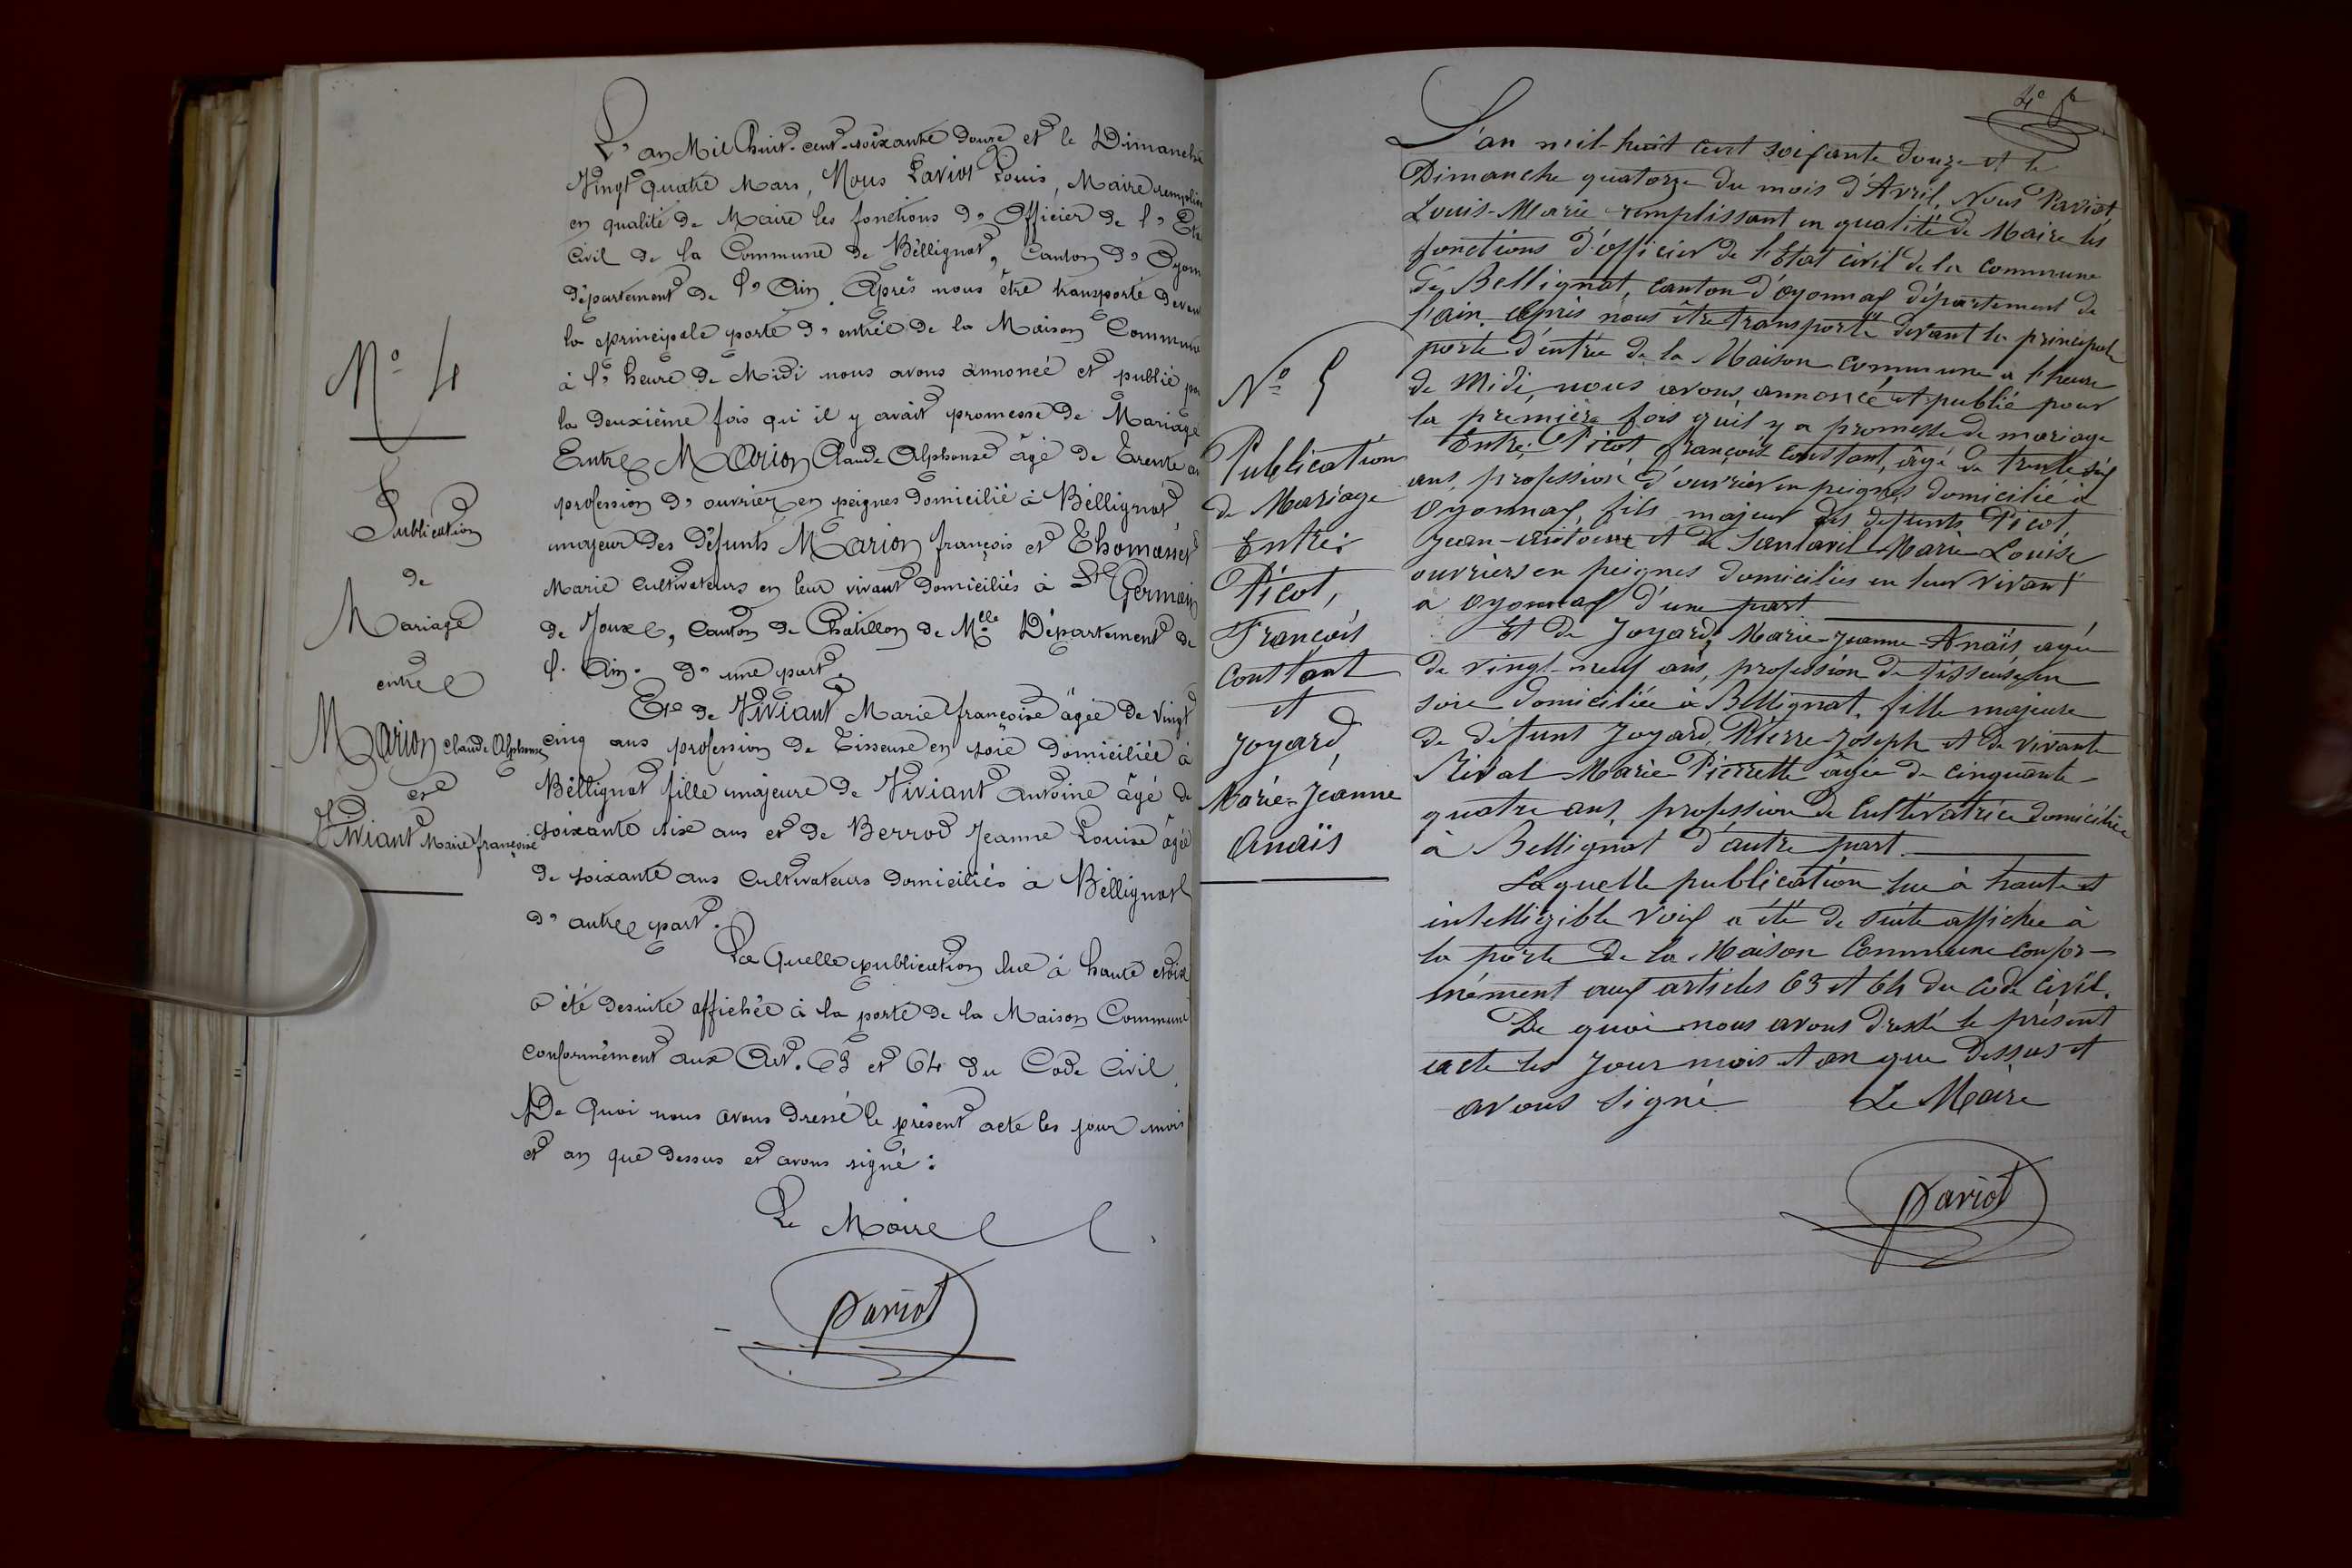 L'an Mil huit-cent-soixante douze et le Dimanche
Vingt quatre Mars, Nous Pariot Louis, Maire remplis
en qualité de Maire les fonctions d'Officier de l'Eta
Civil de la Commune de Béllignat, Canton d'Oyonn
département de l'Ain. Après nous être transporté devant
la principale porte d'entrée de la Maison Commune
à l'heure de Midi nous avons annoncé et publié pou
la deuxième fois qu'il y avait promesse de Mariage
Entre Marion Claude Alphonse âgé de Trente an
profession d'ouvrier en peignes domicilié à Béllignat
majeur des défunts Marion françois et Thomasset
Marie cultivateurs en leur vivant domiciliés à St Germain
de Joux, Canton de Chatillon de Mlle Département de
l'Ain. d'une part.
Et de Viviant Marie françoise âgée de vingt
cinq ans profession de Tisseuse en soie domiciliée à
Béllignat fille majeure de Viviant Antoine âgé de
soixante six ans et de Berrod Jeanne Louise âgée
de soixante ans Cultivateurs domiciliés à Béllignat
d'autre part.
La Quelle publication lue à haute voix
a été desuite affichée à la porte de la Maison Commune
conformément aux Art. 63 et 64 du Code Civil.
De Quoi nous avons dressé le présent acte les jour mois
et an que dessus et avons signé :
Le Maire
Pariot
No 4
Publication
de
Mariage
entre
Marion Claude Alphonse
et
Viviant Marie françoise
4e
L'an mil-huit cent soixante douze et le
Dimanche quatorze du mois d'Avril, Nous Pariot
Louis-Marie remplissant en qualité de Maire les
fonctions d'officier de l'Etat civil de la commune
de Bellignat, canton d'oyonnax département de
l'ain. Après nous être transporté devant la principale
porte d'entrée de la Maison commune à l'heure
de Midi, nous avons, annoncé et publié pour
la première fois qu'il y a promesse de mariage
Entre Picot, françois constant, âgé de trente six
ans, profession d'ouvrier en peignes domicilié à
Oyonnax, fils majeur des défunts Picot
Jean-Antoine et de Marie-Louise
ouvriers en peignes domiciliés en leur vivant
à Oyonnax d'une part
Et de Joyard, Marie-Jeanne-Anaïs agée
de vingt-neuf ans, profession de tisseuse en
soie domiciliée à Bellignat, fille majeure
de défunt Joyard Pierre-Joseph et de vivante
Rival Marie Pierrette âgée de cinquante-
quatre ans, profession de Cultivatrice domiciliée
à Bellignat d'autre part.
Laquelle publication lue à haute et
intelligible voix a été de suite affichée à
la porte de la Maison Commune confor-
mément aux articles 63 et 64 du Code Civil.
De quoi nous avons dressé le présent
acte les jour mois et an que dessus et
avons signé Le Maire
Pariot
No 5
Publication
de Mariage
Entre:
Picot,
François
Constant
et
Joyard,
Marie-Jeanne
Anaïs